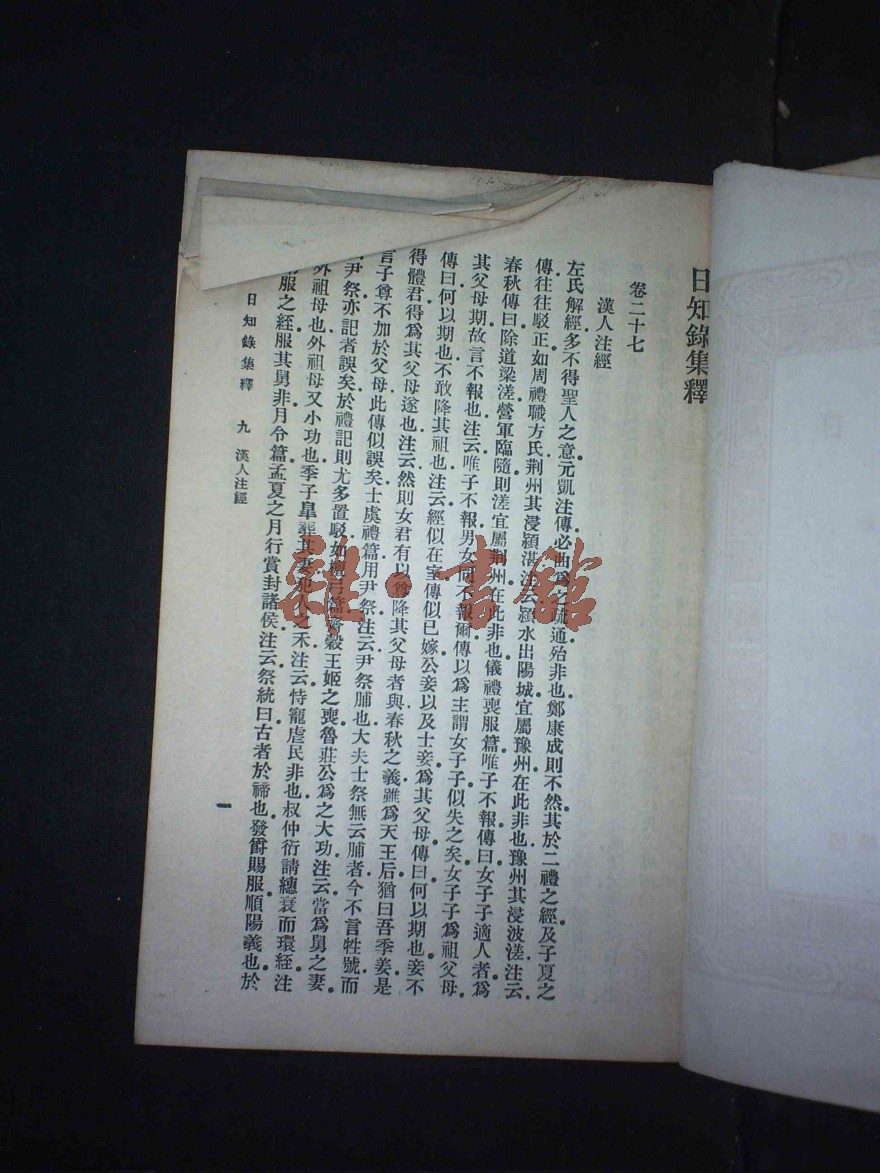 日知錄集釋
卷二十七
漢人注經
左氏解經多不得聖人之意元凱注傳必曲爲之疏通殆非也鄭康成則不然其於二禮之經及子夏之
傳往往駁正如周禮職方氏荆州其浸潁湛注云潁水出陽城宜屬豫州在此非也豫州其浸波溠注云
春秋傳曰除道梁溠營軍臨隨則溠宜屬荆州在此非也儀禮喪服篇唯子不報傳曰女子子適人者爲
其父母期故言不報也注云唯子不報男女同不報爾傳以爲主謂女子子似失之矣女子子爲祖父母
傳曰何以期也不敢降其祖也注云經似在室傳似已嫁公妾以及士妾爲其父母傳曰何以期也妾不
得體君得爲其父母遂也注云然則女君有以尊降其父母者與春秋之義雖爲天王后猶曰吾季姜是
言子尊不加於父母此傳似誤矣士虞禮篇用尹祭注云尹祭脯也大夫士祭無云脯者今不言牲號而
尹祭亦記者誤矣於禮記則尤多置駁如檀弓篇齊穀王姬之喪魯莊公爲之大功注云當爲舅之妻
外祖母也外祖母又小功也季子臯葬其妻犯人之禾注云恃寵虐民非也叔仲衍請繐衰而環絰注
服之絰服其舅非月令篇孟夏之月行賞封諸侯注云祭統曰古者於禘也發爵賜服順陽義也於
日知錄集釋 九 漢人注經
一
雜·書館